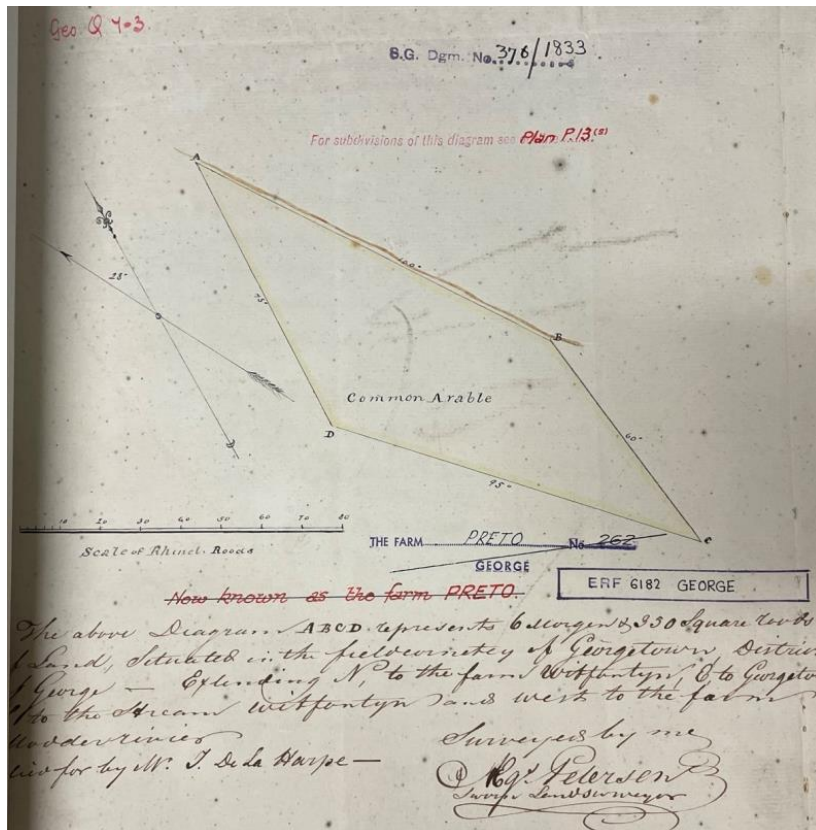 Geo. Q 7-3.
S.G. Dgm. No. 376/1833
For subdivisions of this diagram see Plan P.13.(2)
A
100°
75°
25°
B
Common Arable
D
60°
95°
C
10 20 30 40 50 60 70 80
Scale of Rhind. Roods
THE FARM PRETO No 262
GEORGE
Now known as the farm PRETO.
ERF 6182 GEORGE
The above Diagram ABCD represents 6 Morgen & 330 Square roods
Land, Situated in the fieldcornetcy of Georgetown, District
George — Extending N, to the farm Witfontyn, E to Georgeto
to the Stream witfontyn and west to the farm
Modderrivier
for by Mr. J. De La Harpe —
Surveyed by me
Petersen
Sworn Landsurveyor